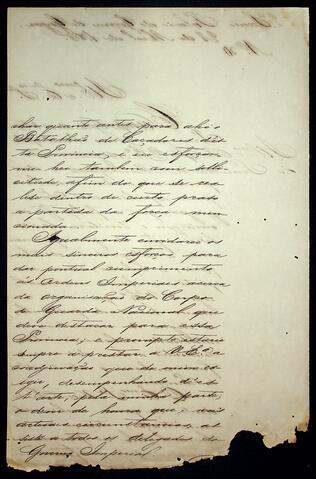 char quanto antes para ahi o
Batalhão de Caçadores d'es-
ta Provincia, e eu esforçar
me hei tambem com solli-
citude, afim de que se rea-
lise dentro de curto praso
a partida da força men-
cionada.
Igualmente envidarei os
meus sinceros esforços para
dar pontual cumprimento
as Ordens Imperiaes acerca
da organisação do Corpo
de Guarda Nacional que
deve destacar para essa
Provincia; e prompto estarei
sempre a prestar a V. Ex.ª a
coadjuvação que de mim exi-
gir, desempenhando d'es-
t'arte, pela minha parte,
o dever de honra que, nas
actuaes circunstancias, as-
siste a todos os delegados do
Governo Imperial